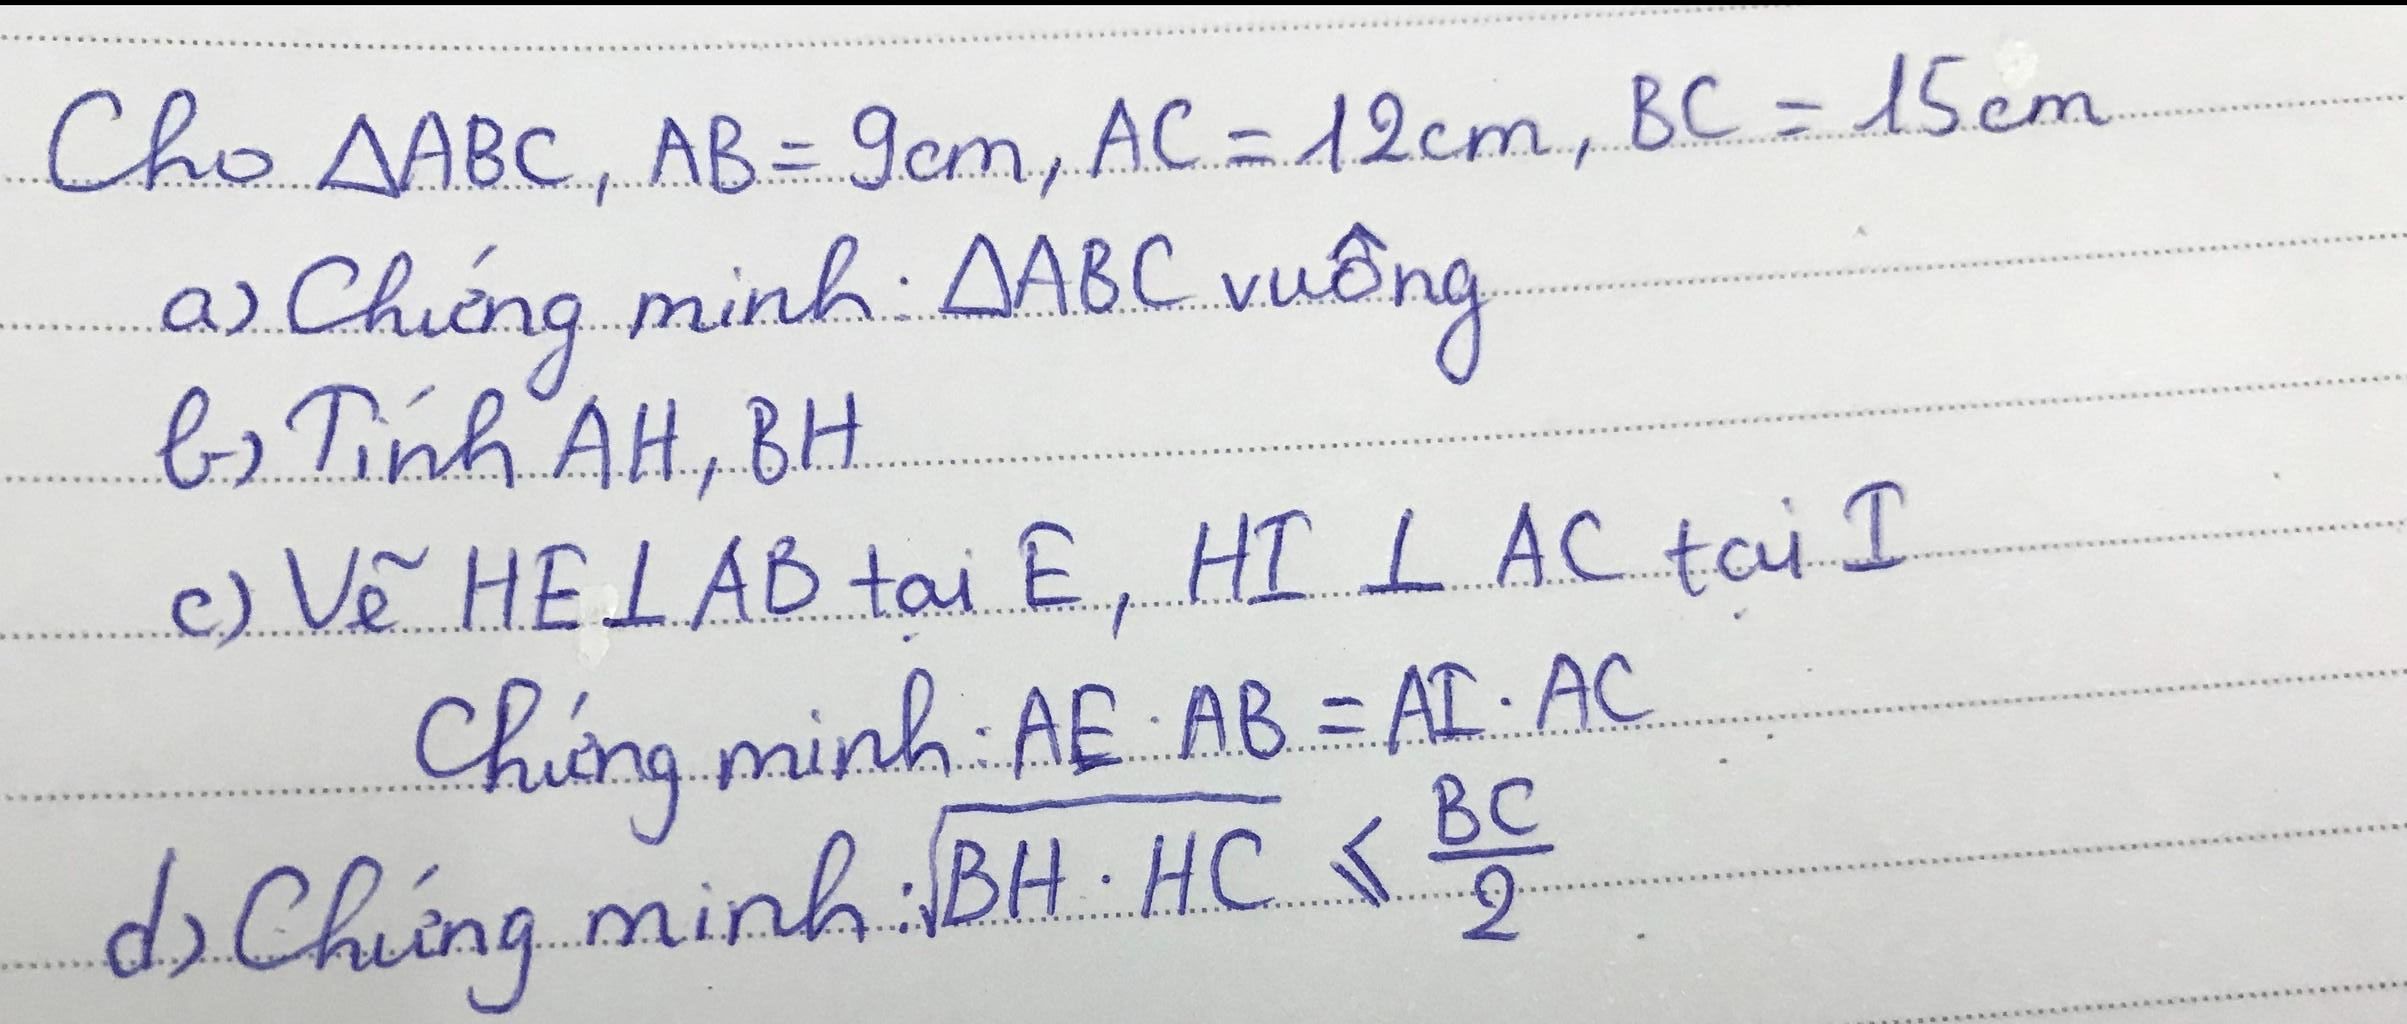 Cho ΔABC, AB = 9cm, AC = 12cm, BC = 15cm
a) Chứng minh: ΔABC vuông
b) Tính AH, BH
c) Vẽ HE ⊥ AB tại E, HI ⊥ AC tại I
Chứng minh: AE · AB = AI · AC
d) Chứng minh: √(BH · HC) ⩽ BC/2